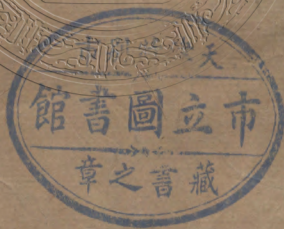 天
市立圖書館
藏書之章